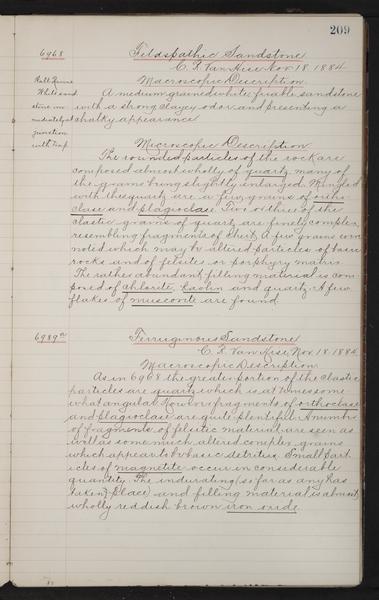 209
6968 Feldspathic Sandstone
C. R. Van Hise, Nov 18. 1884.
Macroscopic Description
White sand
stone im
mediately at
junction
with trap
A medium grained white, friable sandstone
with a strong clayey odor and presenting a
chalky appearance
Microscopic Description
The rounded particles of the rock are
composed almost wholly of quartz many of
the grains being slightly enlarged. Mingled
with the quartz are a few grains of ortho
clase and plagioclase. Two or three of the
clastic grains of quartz are finely complex
resembling fragments of chert. A few grains were
noted which may be altered particles of basic
rocks and of felsite or porphyry matrix
The rather abundant filling material is com
posed of chlorite, kaolin and quartz. A few
flakes of muscovite are found.
6989 Ferruginous Sandstone
C. R. Van Hise, Nov. 18. 1884.
Macroscopic Description
As in 6968 the greater portion of the clastic
particles are quartz which is at times some
what angular. A few fragments of orthoclase
and plagioclase are quite plentiful. A number
of fragments of felsitic material are seen as
well as some much altered complex grains
which appear to be basic detritus. Small part
icles of magnetite occur in considerable
quantity. The indurating (so far as any has
taken place) and filling material is almost
wholly reddish brown iron oxide.